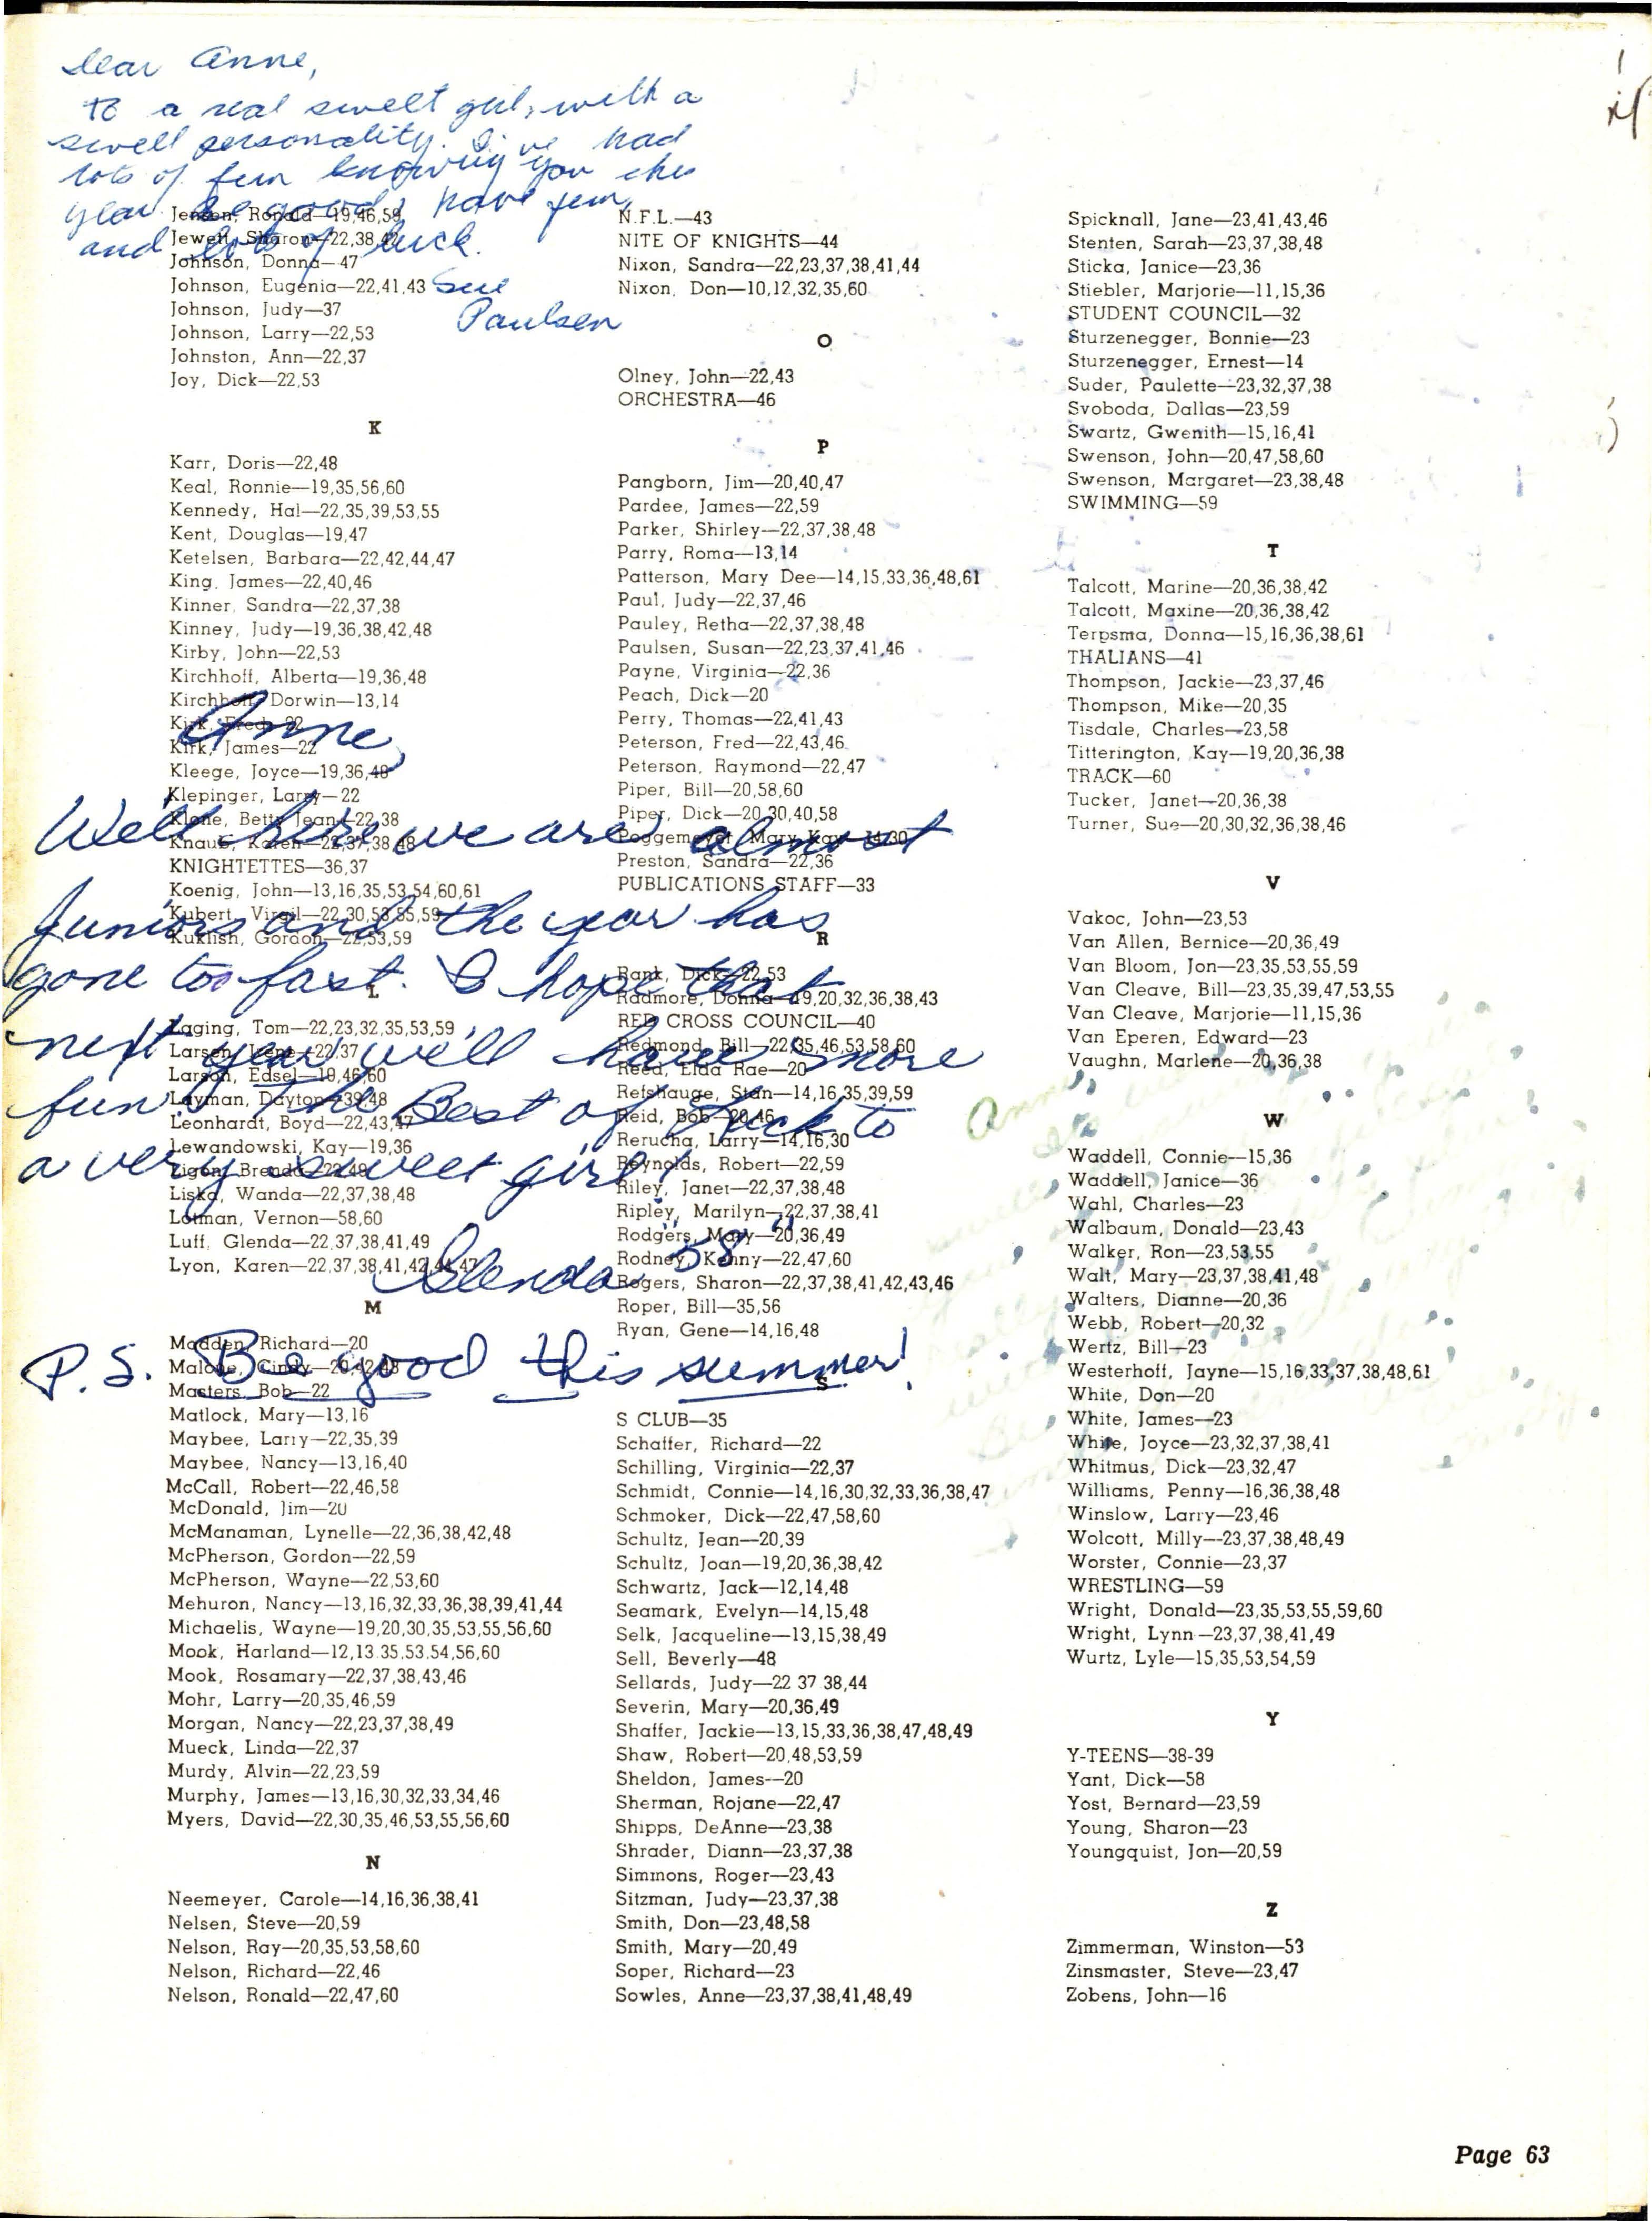 Dear Anne,
to a real sweet girl, with a
swell personality. I've had
lots of fun knowing you this
year. Be good, have fun,
and lots of luck.
Sue
Paulsen
Jensen, Ronald—19,46,59
Jewett, Sharon—22,38,42
Johnson, Donna—47
Johnson, Eugenia—22,41,43
Johnson, Judy—37
Johnson, Larry—22,53
Johnston, Ann—22,37
Joy, Dick—22,53
K
Karr, Doris—22,48
Keal, Ronnie—19,35,56,60
Kennedy, Hal—22,35,39,53,55
Kent, Douglas—19,47
Ketelsen, Barbara—22,42,44,47
King, James—22,40,46
Kinner, Sandra—22,37,38
Kinney, Judy—19,36,38,42,48
Kirby, John—22,53
Kirchhoff, Alberta—19,36,48
Kirchhoff, Dorwin—13,14
Kirk, Fred—22
Kirk, James—22
Kleege, Joyce—19,36,48
Klepinger, Larry—22
Klone, Betty Jean—22,38
Knaub, Karen—22,37,38,48
KNIGHTETTES—36,37
Koenig, John—13,16,35,53,54,60,61
Kubert, Virgil—22,30,53,55,59
Kuklish, Gordon—22,53,59
L
Laging, Tom—22,23,32,35,53,59
Larsen, Irene—22,37
Larson, Edsel—19,46,60
Layman, Dayton—39,48
Leonhardt, Boyd—22,43,47
Lewandowski, Kay—19,36
Ligon, Brenda—22,49
Liska, Wanda—22,37,38,48
Lotman, Vernon—58,60
Luff, Glenda—22,37,38,41,49
Lyon, Karen—22,37,38,41,42,44,47
M
Madden, Richard—20
Malone, Cindy—20,42,48
Masters, Bob—22
Matlock, Mary—13,16
Maybee, Larry—22,35,39
Maybee, Nancy—13,16,40
McCall, Robert—22,46,58
McDonald, Jim—20
McManaman, Lynelle—22,36,38,42,48
McPherson, Gordon—22,59
McPherson, Wayne—22,53,60
Mehuron, Nancy—13,16,32,33,36,38,39,41,44
Michaelis, Wayne—19,20,30,35,53,55,56,60
Mook, Harland—12,13,35,53,54,56,60
Mook, Rosamary—22,37,38,43,46
Mohr, Larry—20,35,46,59
Morgan, Nancy—22,23,37,38,49
Mueck, Linda—22,37
Murdy, Alvin—22,23,59
Murphy, James—13,16,30,32,33,34,46
Myers, David—22,30,35,46,53,55,56,60
N
Neemeyer, Carole—14,16,36,38,41
Nelsen, Steve—20,59
Nelson, Ray—20,35,53,58,60
Nelson, Richard—22,46
Nelson, Ronald—22,47,60
Anne,
Well here we are almost
Juniors and the year has
gone too fast. I hope that
next year we'll have more
fun. The Best of Luck to
a very sweet girl!
Glenda "58"
P.S. Be good this summer!
N.F.L.—43
NITE OF KNIGHTS—44
Nixon, Sandra—22,23,37,38,41,44
Nixon, Don—10,12,32,35,60
O
Olney, John—22,43
ORCHESTRA—46
P
Pangborn, Jim—20,40,47
Pardee, James—22,59
Parker, Shirley—22,37,38,48
Parry, Roma—13,14
Patterson, Mary Dee—14,15,33,36,48,61
Paul, Judy—22,37,46
Pauley, Retha—22,37,38,48
Paulsen, Susan—22,23,37,41,46
Payne, Virginia—22,36
Peach, Dick—20
Perry, Thomas—22,41,43
Peterson, Fred—22,43,46
Peterson, Raymond—22,47
Piper, Bill—20,58,60
Piper, Dick—20,30,40,58
Poggemeyer, Mary Kay—14,30
Preston, Sandra—22,36
PUBLICATIONS STAFF—33
R
Rank, Dick—22,53
Radmore, Donna—19,20,32,36,38,43
RED CROSS COUNCIL—40
Redmond, Bill—22,35,46,53,58,60
Reed, Elda Rae—20
Refshauge, Stan—14,16,35,39,59
Reid, Bob—20,46
Rerucha, Larry—14,16,30
Reynolds, Robert—22,59
Riley, Janet—22,37,38,48
Ripley, Marilyn—22,37,38,41
Rodgers, Mary—20,36,49
Rodney, Kenny—22,47,60
Rogers, Sharon—22,37,38,41,42,43,46
Roper, Bill—35,56
Ryan, Gene—14,16,48
S
S CLUB—35
Schaffer, Richard—22
Schilling, Virginia—22,37
Schmidt, Connie—14,16,30,32,33,36,38,47
Schmoker, Dick—22,47,58,60
Schultz, Jean—20,39
Schultz, Joan—19,20,36,38,42
Schwartz, Jack—12,14,48
Seamark, Evelyn—14,15,48
Selk, Jacqueline—13,15,38,49
Sell, Beverly—48
Sellards, Judy—22 37 38,44
Severin, Mary—20,36,49
Shaffer, Jackie—13,15,33,36,38,47,48,49
Shaw, Robert—20,48,53,59
Sheldon, James—20
Sherman, Rojane—22,47
Shipps, DeAnne—23,38
Shrader, Diann—23,37,38
Simmons, Roger—23,43
Sitzman, Judy—23,37,38
Smith, Don—23,48,58
Smith, Mary—20,49
Soper, Richard—23
Sowles, Anne—23,37,38,41,48,49
Spicknall, Jane—23,41,43,46
Stenten, Sarah—23,37,38,48
Sticka, Janice—23,36
Stiebler, Marjorie—11,15,36
STUDENT COUNCIL—32
Sturzenegger, Bonnie—23
Sturzenegger, Ernest—14
Suder, Paulette—23,32,37,38
Svoboda, Dallas—23,59
Swartz, Gwenith—15,16,41
Swenson, John—20,47,58,60
Swenson, Margaret—23,38,48
SWIMMING—59
T
Talcott, Marine—20,36,38,42
Talcott, Maxine—20,36,38,42
Terpsma, Donna—15,16,36,38,61
THALIANS—41
Thompson, Jackie—23,37,46
Thompson, Mike—20,35
Tisdale, Charles—23,58
Titterington, Kay—19,20,36,38
TRACK—60
Tucker, Janet—20,36,38
Turner, Sue—20,30,32,36,38,46
V
Vakoc, John—23,53
Van Allen, Bernice—20,36,49
Van Bloom, Jon—23,35,53,55,59
Van Cleave, Bill—23,35,39,47,53,55
Van Cleave, Marjorie—11,15,36
Van Eperen, Edward—23
Vaughn, Marlene—20,36,38
W
Waddell, Connie—15,36
Waddell, Janice—36
Wahl, Charles—23
Walbaum, Donald—23,43
Walker, Ron—23,53,55
Walt, Mary—23,37,38,41,48
Walters, Dianne—20,36
Webb, Robert—20,32
Wertz, Bill—23
Westerhoff, Jayne—15,16,33,37,38,48,61
White, Don—20
White, James—23
White, Joyce—23,32,37,38,41
Whitmus, Dick—23,32,47
Williams, Penny—16,36,38,48
Winslow, Larry—23,46
Wolcott, Milly—23,37,38,48,49
Worster, Connie—23,37
WRESTLING—59
Wright, Donald—23,35,53,55,59,60
Wright, Lynn—23,37,38,41,49
Wurtz, Lyle—15,35,53,54,59
Y
Y-TEENS—38-39
Yant, Dick—58
Yost, Bernard—23,59
Young, Sharon—23
Youngquist, Jon—20,59
Z
Zimmerman, Winston—53
Zinsmaster, Steve—23,47
Zobens, John—16
Page 63